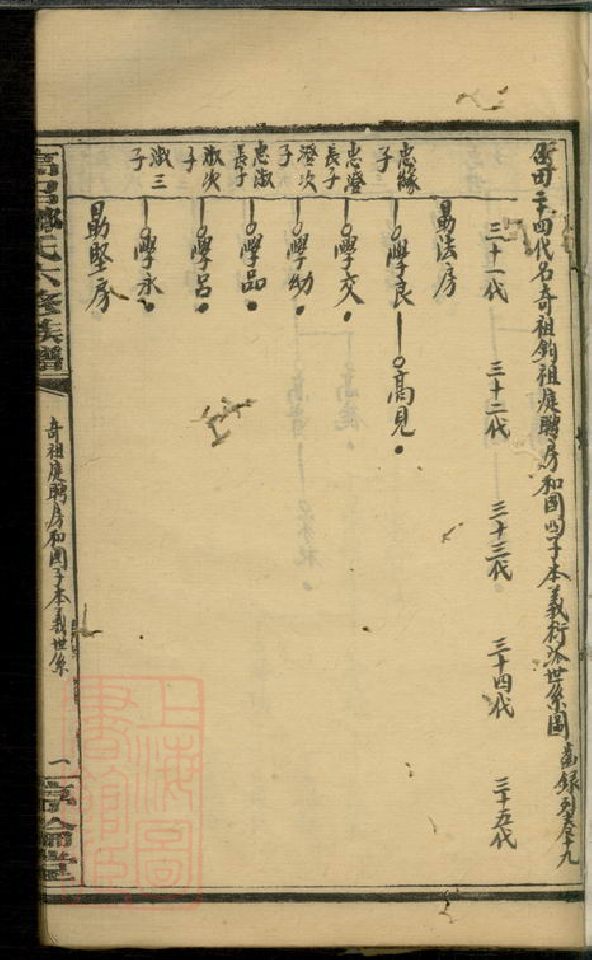 四代名奇祖鈞祖庭聘房和國四子本義衍派世系圖
錄列卷十九
三十一代
三十二代
三十三代
三十四代
三十五代
易法房
忠緣子
學良
高見
忠澄長子
學交
澄次子
學幼
忠淑長子
學品
淑次子
學呂
淑三子
學永
易堅房
氏六修族譜
奇祖庭聘房和國子本義世系
一
上海圖書館藏